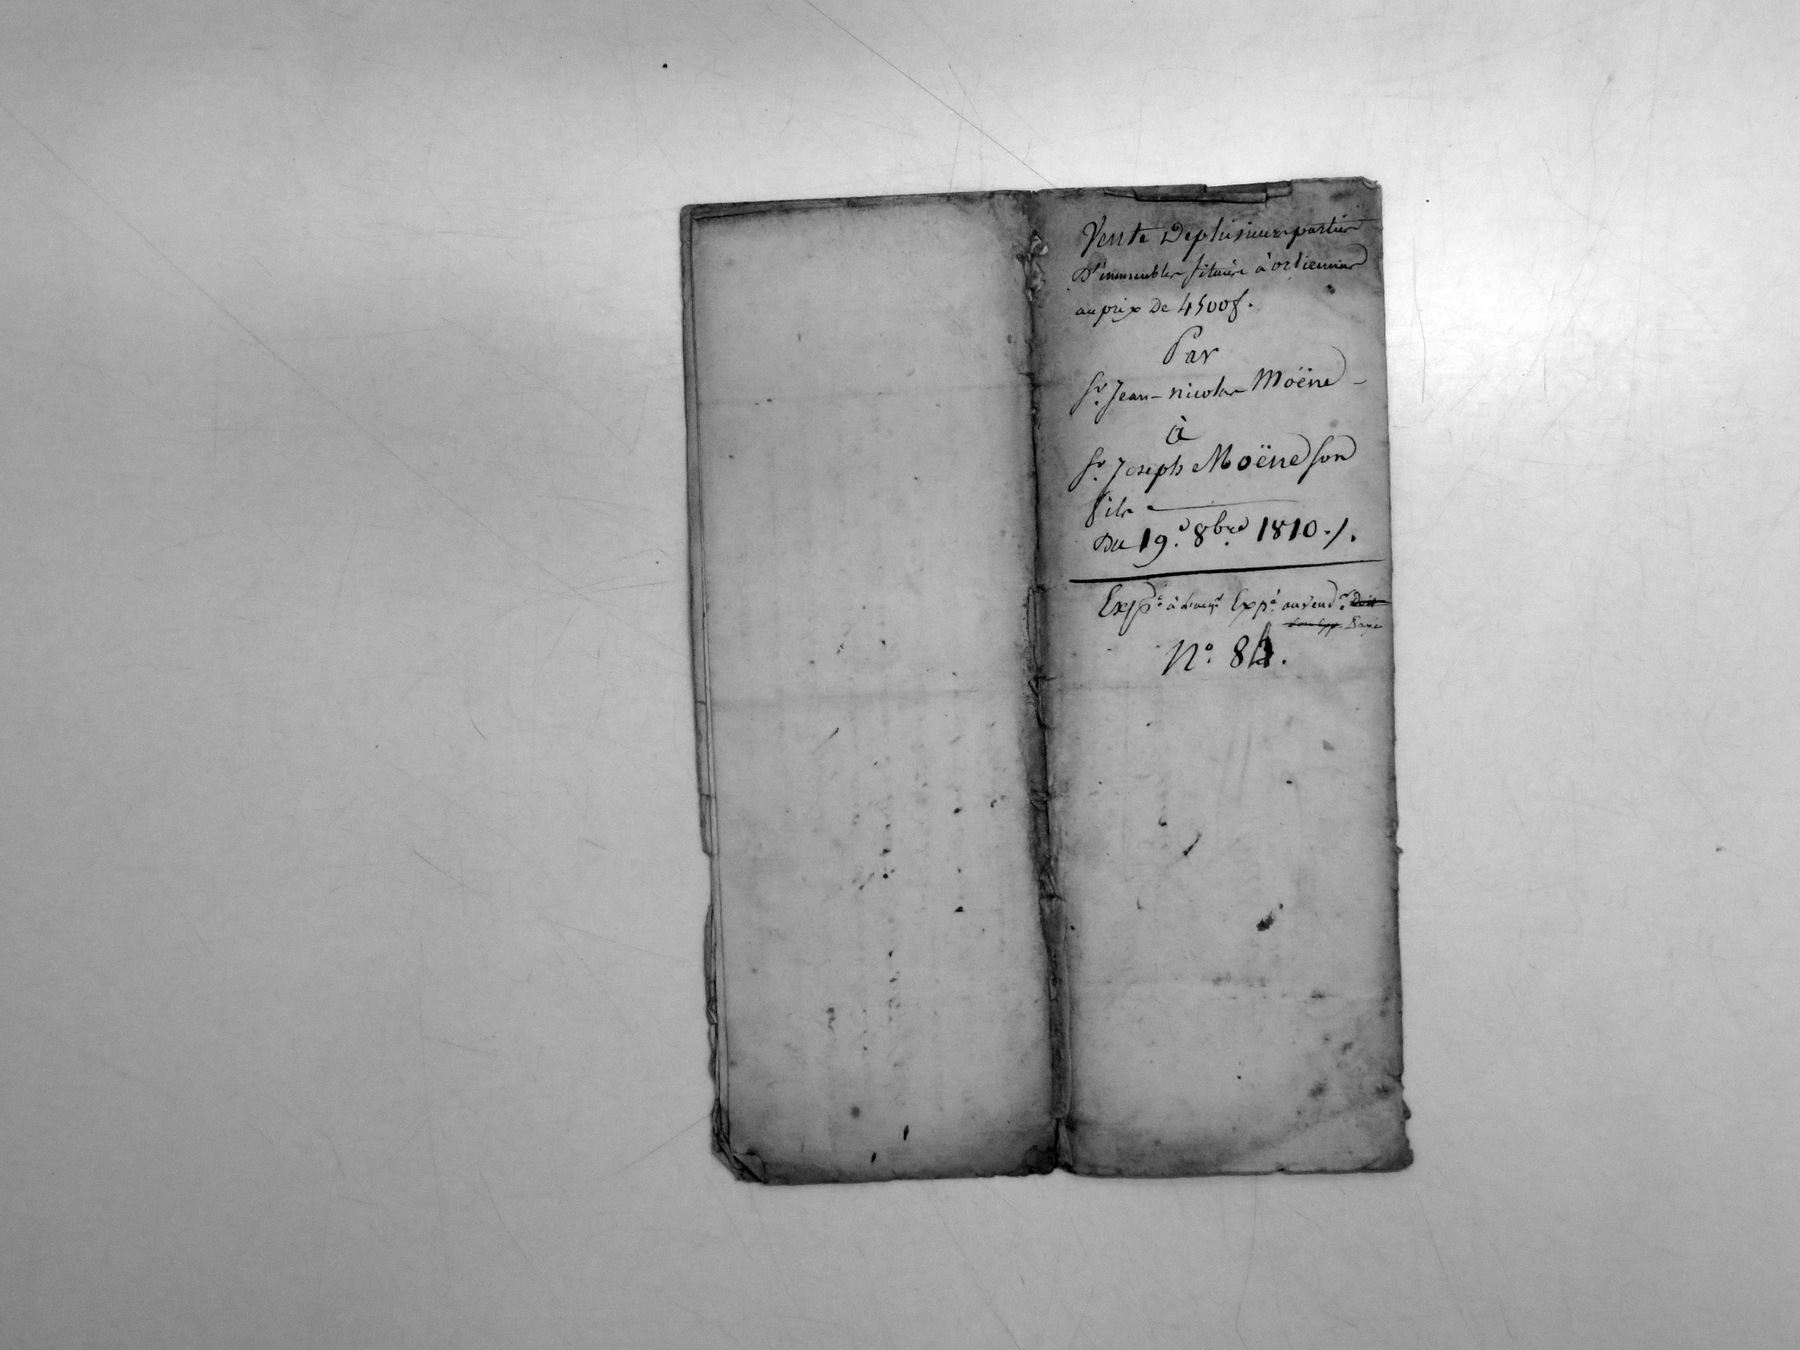 Vente de plusieurs parties
d'immeubles situées à
au prix de 4500f.
Par
Sr. Jean-nicolas Moëne -
à
Sr. Joseph Moëne son
fils
Du 19.e 8bre 1810./.
Expé. à Expé. au vendr. Doit
Payé
N°. 84.